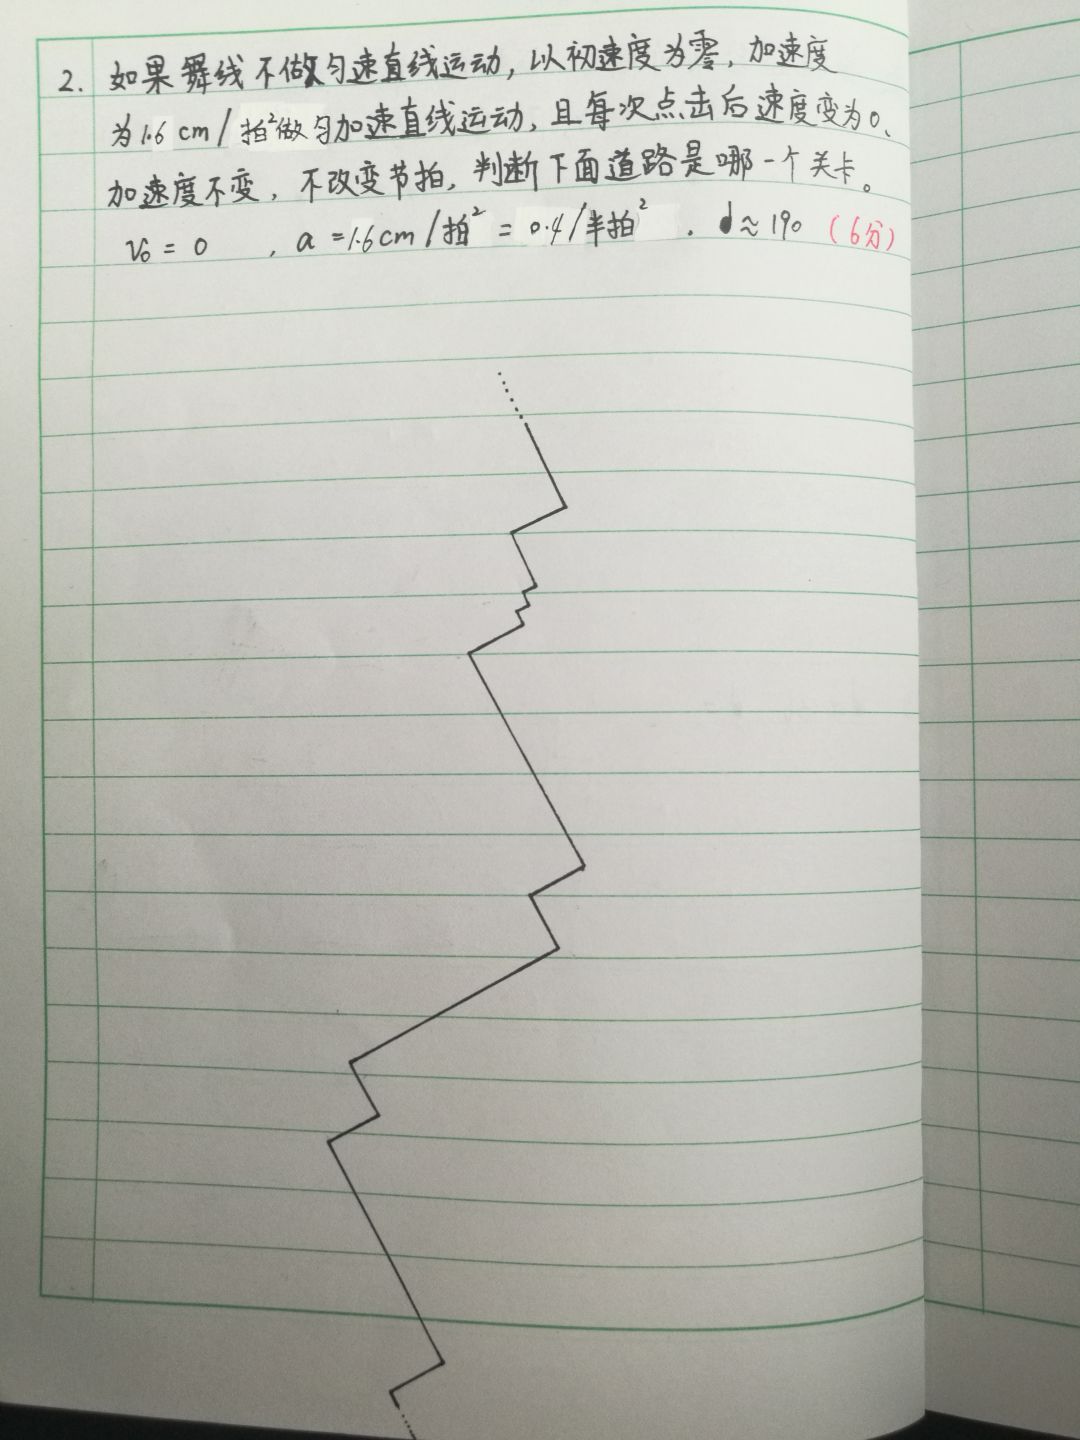 2. 如果舞线不做匀速直线运动，以初速度为零，加速度
为1.6 cm/拍²做匀加速直线运动，且每次点击后速度变为0、
加速度不变，不改变节拍，判断下面道路是哪一个关卡。
V₀ = 0 , a = 1.6cm/拍² = 0.4/半拍² . d ≈ 190 (6分)